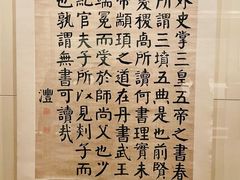 外史掌三皇五帝之書春
所謂三墳五典是也前賢
夔稷卨所讀何書理實未
帝顓頊之道在丹書武王
端冕而受於師尚父也少
紀官夫子所以見郯子而
也孰謂無書可讀哉
澧